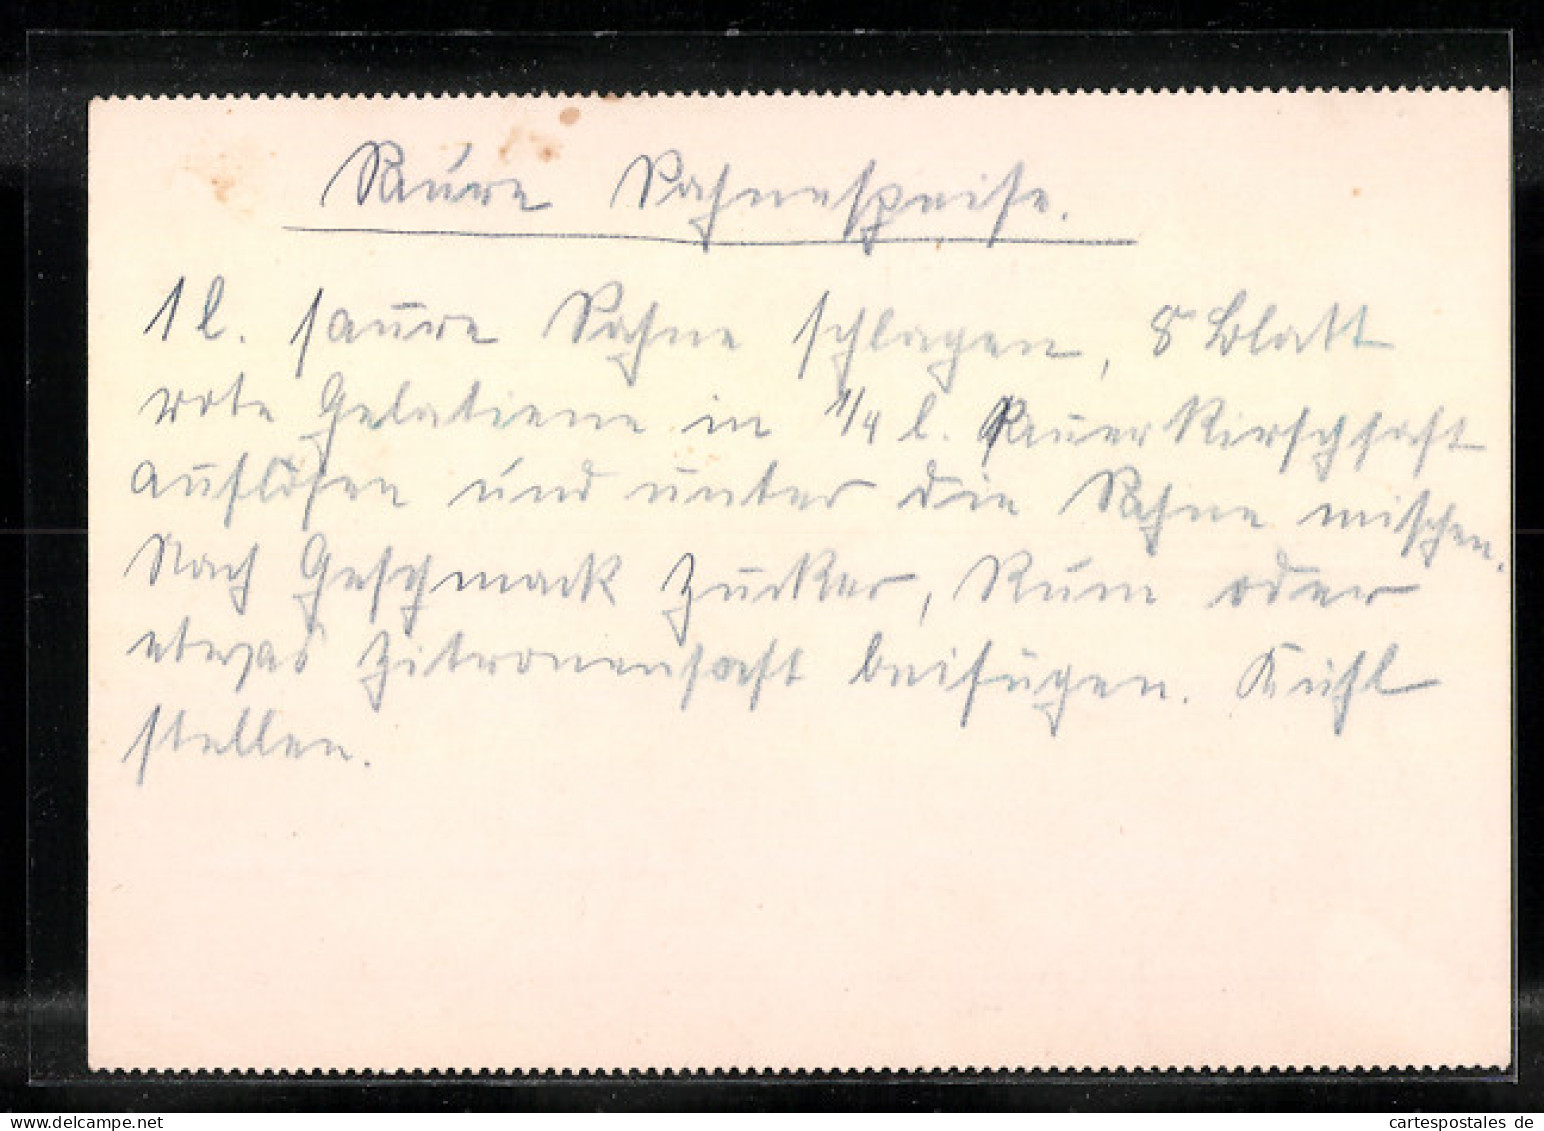 Saure Sahnespeise.
1 l. saure Sahne schlagen, 8 Blatt
rote Gelatiene in 1/4 l. sauer Kirschsaft
auflösen und unter die Sahne mischen.
Nach Geschmack Zucker, Rum oder
etwas Zitronensaft beifügen. Kühl
stellen.
cartespostales de